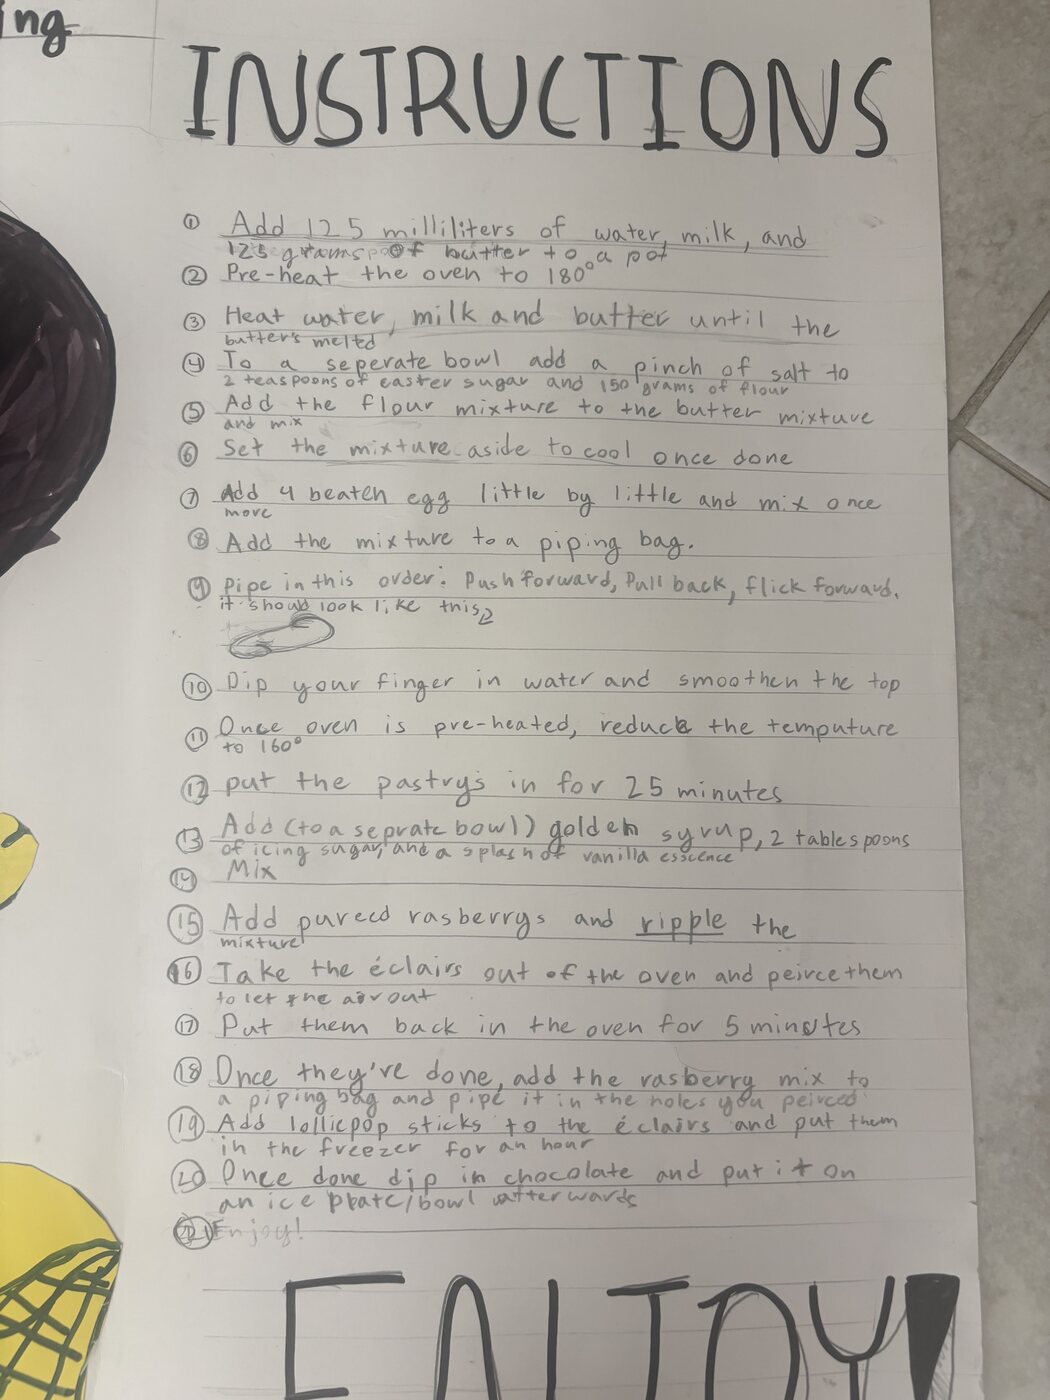 ing
INSTRUCTIONS
① Add 125 milliliters of water, milk, and
125 grams of butter to a pot
② Pre-heat the oven to 180°
③ Heat water, milk and butter until the
butter's meltd
④ To a seperate bowl add a pinch of salt to
2 teaspoons of easter sugar and 150 grams of flour
⑤ Add the flour mixture to the butter mixture
and mix
⑥ Set the mixture aside to cool once done
⑦ Add 4 beaten egg little by little and mix once
more
⑧ Add the mixture to a piping bag.
⑨ Pipe in this order: Push forward, Pull back, flick forward.
it should look like this
⑩ Dip your finger in water and smoothen the top
⑪ Once oven is pre-heated, reduce the temputure
to 160°
⑫ put the pastry's in for 25 minutes
⑬ Add (to a seprate bowl) golden syrup, 2 tablespoons
of icing sugar, and a splash of vanilla esscence
⑭ Mix
⑮ Add pureed rasberrys and ripple the
mixture
⑯ Take the éclairs out of the oven and peirce them
to let the air out
⑰ Put them back in the oven for 5 minutes
⑱ Once they've done, add the rasberry mix to
a piping bag and pipe it in the holes you peirced
⑲ Add lollicpop sticks to the éclairs and put them
in the freezer for an hour
⑳ Once done dip in chocolate and put it on
an ice plate/bowl afterwards
㉑ Enjoy!
ENJOY!